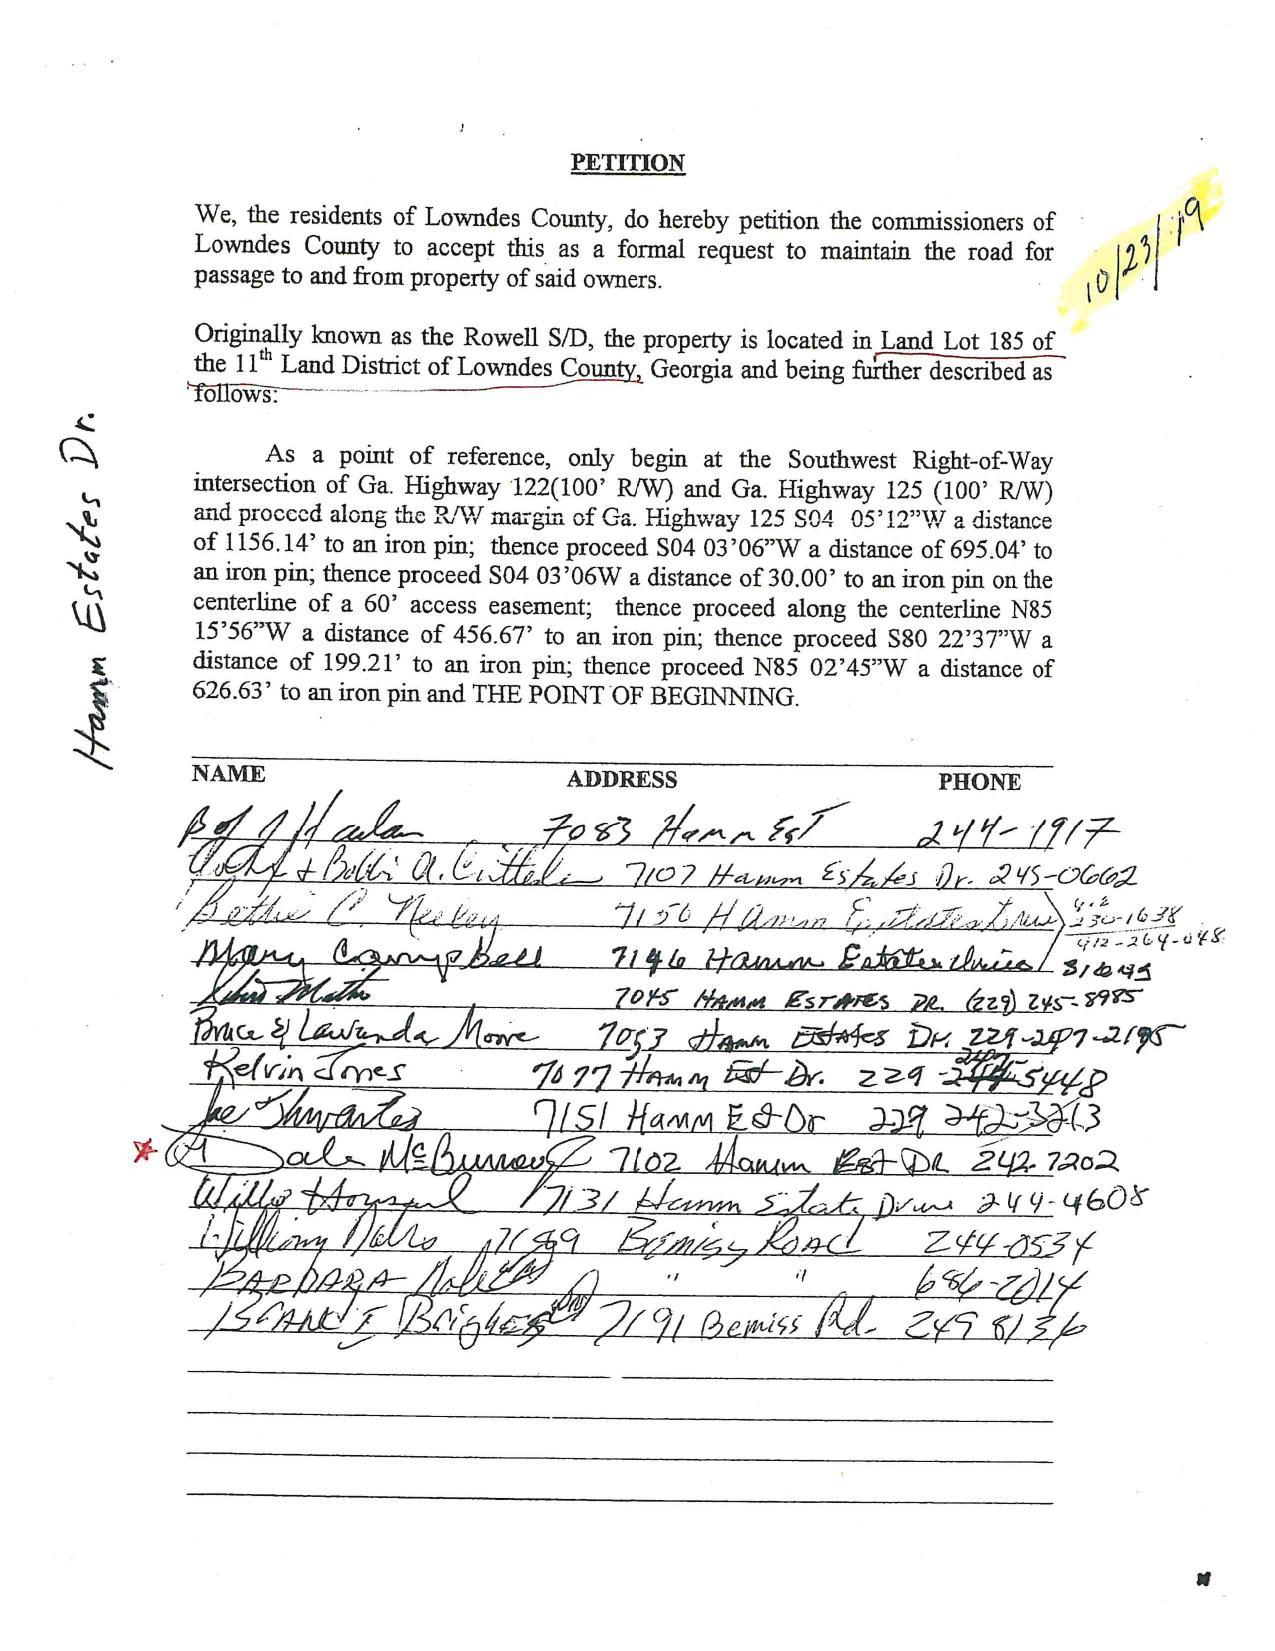 PETITION
10/23/19
We, the residents of Lowndes County, do hereby petition the commissioners of
Lowndes County to accept this as a formal request to maintain the road for
passage to and from property of said owners.
Originally known as the Rowell S/D, the property is located in Land Lot 185 of
the 11th Land District of Lowndes County, Georgia and being further described as
follows:
Hamm Estates Dr.
As a point of reference, only begin at the Southwest Right-of-Way
intersection of Ga. Highway 122(100' R/W) and Ga. Highway 125 (100' R/W)
and proceed along the R/W margin of Ga. Highway 125 S04 05'12"W a distance
of 1156.14' to an iron pin; thence proceed S04 03'06"W a distance of 695.04' to
an iron pin; thence proceed S04 03'06W a distance of 30.00' to an iron pin on the
centerline of a 60' access easement; thence proceed along the centerline N85
15'56"W a distance of 456.67' to an iron pin; thence proceed S80 22'37"W a
distance of 199.21' to an iron pin; thence proceed N85 02'45"W a distance of
626.63' to an iron pin and THE POINT OF BEGINNING.
NAME ADDRESS PHONE
7083 Hamm Est 244-1917
& Bobbi A. 7107 Hamm Estates Dr. 245-0662
C. Neeley 7156 Hamm Estates Drive
Mary Campbell 7146 Hamm Estates Drive
7045 HAMM ESTATES DR. (229) 245-8985
Bruce & Lawanda Moore 7053 Hamm Estates Dr.
Kelvin Jones 7077 Hamm Est Dr. 229 5448
Joe 7151 Hamm Est Dr 229 242-3213
Dale 7102 Hamm Est DR 242-7202
7131 Hamm Estate Drive 244-4608
Bemiss Road 244-0534
BARBARA " " 686-2014
7191 Bemiss Rd. 249 8136